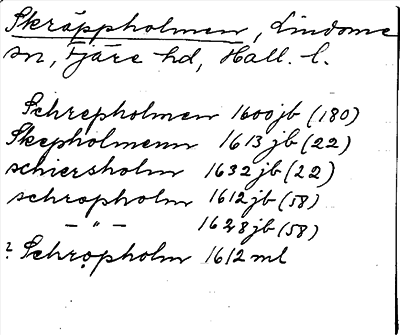 Skräppholmen, Lindome
sn, Fjäre hd, Hall. l.
Schrepholmen 1600 jb (180)
Skepholmenn 1613 jb (22)
schiersholm 1632 jb (22)
schropholm 1612 jb (58)
– " – 1628 jb (58)
? Schropholm 1612 ml